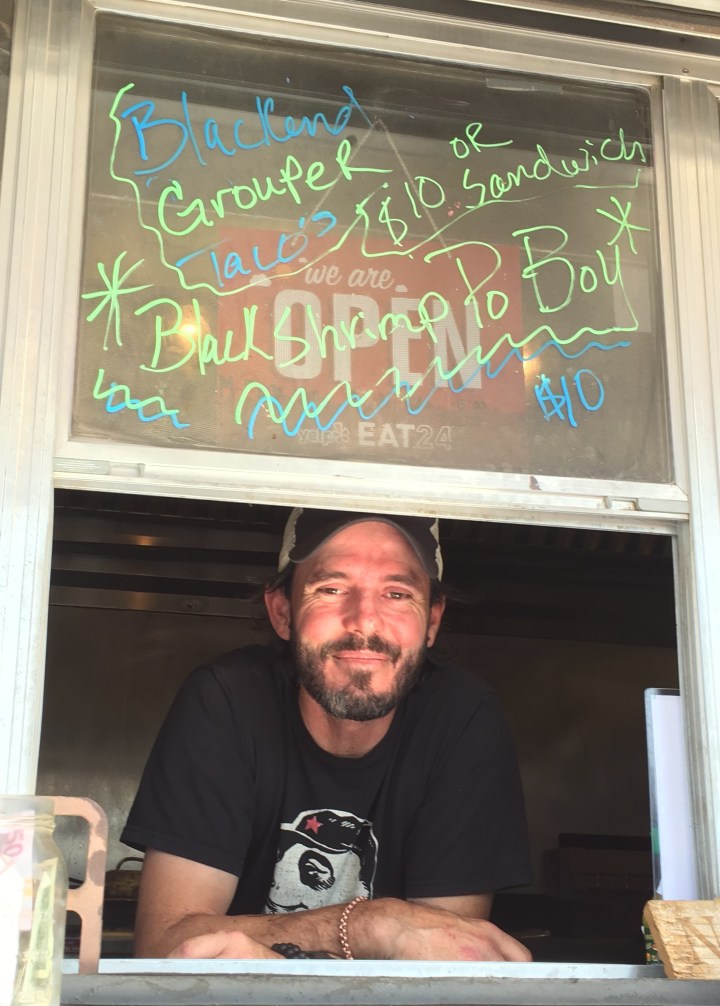 Blackend
Grouper OR
Taco's $10 Sandwich
* Black Shrimp Po Boy *
$10
we are
OPEN
yelp's EAT24